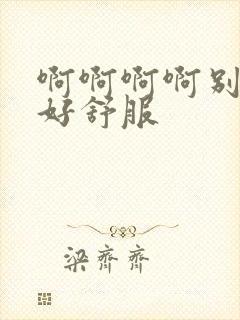 啊啊啊啊别
好舒服
梁齐齐